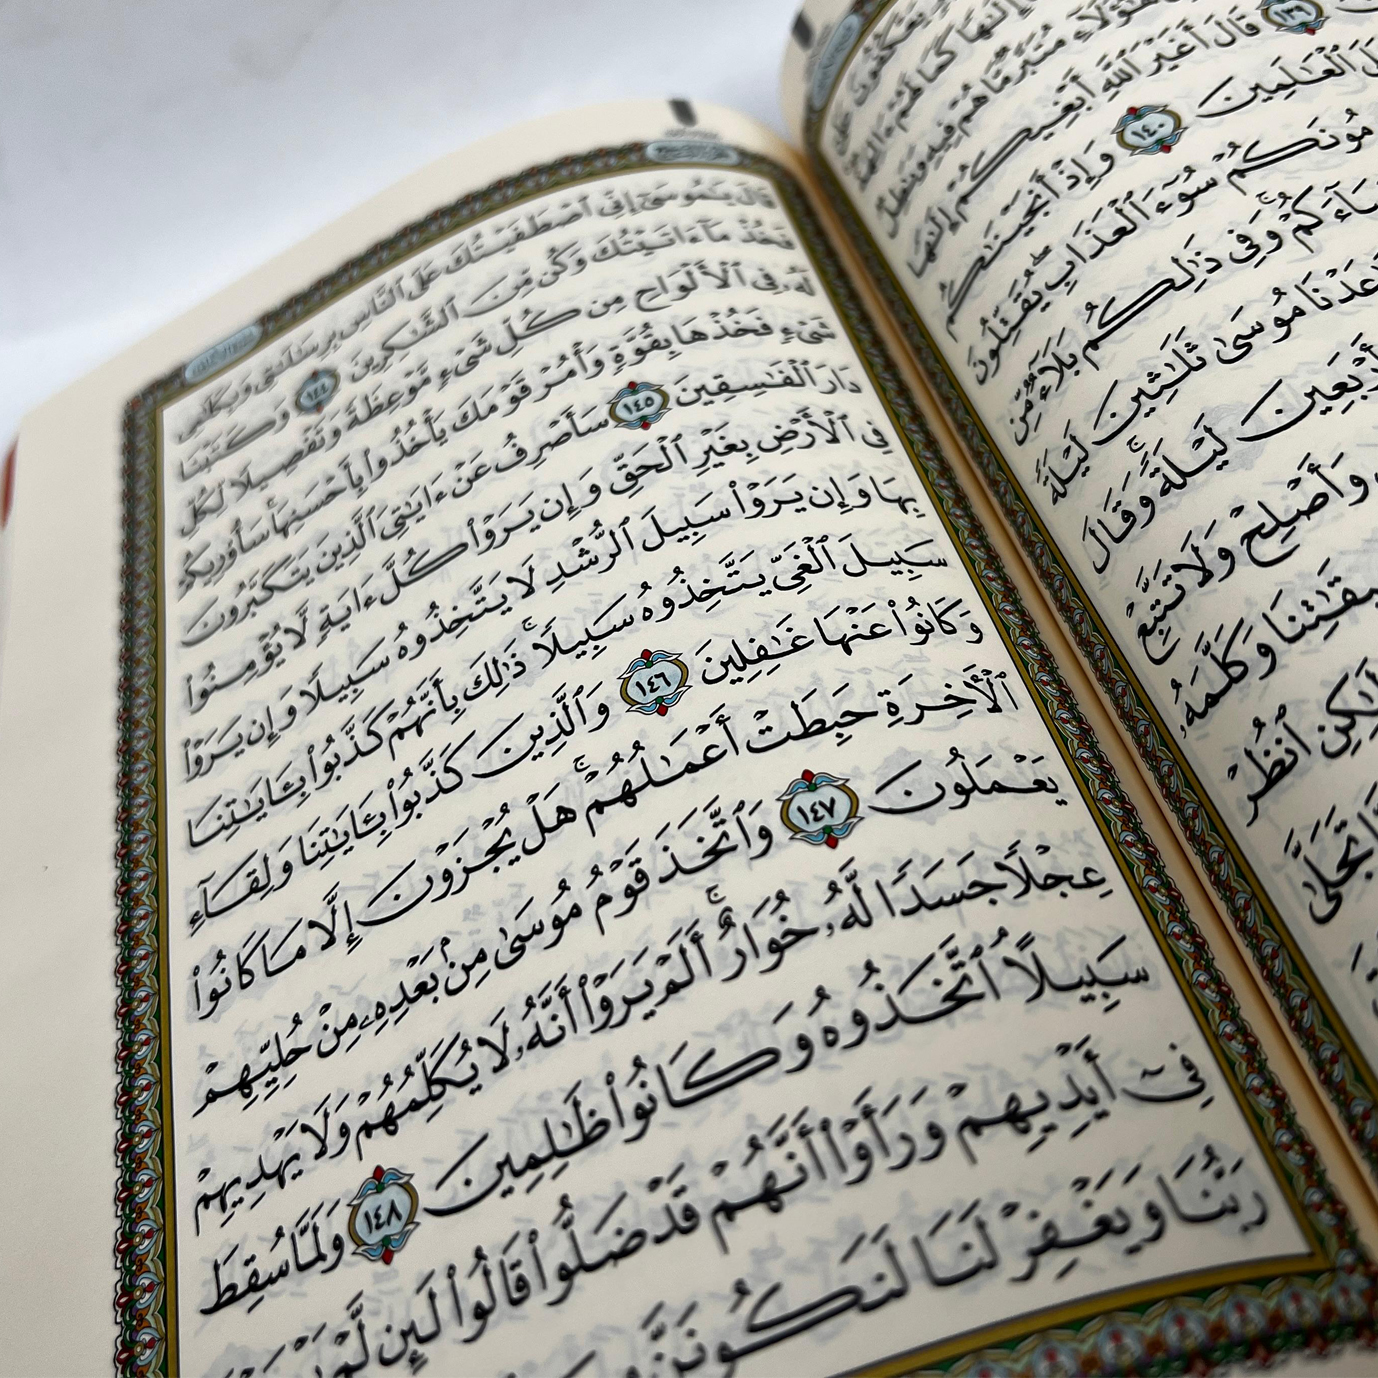 يَعْكُفُونَ عَلَىٰٓ
إِلَٰهًا كَمَا لَهُمْ ءَالِهَةٌ
هَٰٓؤُلَآءِ مُتَبَّرٌ مَّا هُمْ فِيهِ وَبَٰطِلٌ
١٣٩ قَالَ أَغَيْرَ ٱللَّهِ أَبْغِيكُمْ إِلَٰهًا
ٱلْعَٰلَمِينَ ١٤٠ وَإِذْ أَنجَيْنَٰكُم
مُونَكُمْ سُوٓءَ ٱلْعَذَابِ يُقَتِّلُونَ
سَآءَكُمْ ۚ وَفِى ذَٰلِكُم بَلَآءٌ مِّن
عَدْنَا مُوسَىٰ ثَلَٰثِينَ لَيْلَةً
أَرْبَعِينَ لَيْلَةً ۚ وَقَالَ
وَأَصْلِحْ وَلَا تَتَّبِعْ
يقَٰتِنَا وَكَلَّمَهُۥ
لَٰكِنِ ٱنظُرْ
تَجَلَّىٰ
قَالَ يَٰمُوسَىٰٓ إِنِّى ٱصْطَفَيْتُكَ عَلَى ٱلنَّاسِ بِرِسَٰلَٰتِى وَبِكَلَٰمِى
فَخُذْ مَآ ءَاتَيْتُكَ وَكُن مِّنَ ٱلشَّٰكِرِينَ ١٤٤ وَكَتَبْنَا
لَهُۥ فِى ٱلْأَلْوَاحِ مِن كُلِّ شَىْءٍ مَّوْعِظَةً وَتَفْصِيلًا لِّكُلِّ
شَىْءٍ فَخُذْهَا بِقُوَّةٍ وَأْمُرْ قَوْمَكَ يَأْخُذُوا۟ بِأَحْسَنِهَا ۚ سَأُو۟رِيكُمْ
دَارَ ٱلْفَٰسِقِينَ ١٤٥ سَأَصْرِفُ عَنْ ءَايَٰتِىَ ٱلَّذِينَ يَتَكَبَّرُونَ
فِى ٱلْأَرْضِ بِغَيْرِ ٱلْحَقِّ وَإِن يَرَوْا۟ كُلَّ ءَايَةٍ لَّا يُؤْمِنُوا۟
بِهَا وَإِن يَرَوْا۟ سَبِيلَ ٱلرُّشْدِ لَا يَتَّخِذُوهُ سَبِيلًا وَإِن يَرَوْا۟
سَبِيلَ ٱلْغَىِّ يَتَّخِذُوهُ سَبِيلًا ۚ ذَٰلِكَ بِأَنَّهُمْ كَذَّبُوا۟ بِـَٔايَٰتِنَا
وَكَانُوا۟ عَنْهَا غَٰفِلِينَ ١٤٦ وَٱلَّذِينَ كَذَّبُوا۟ بِـَٔايَٰتِنَا وَلِقَآءِ
ٱلْـَٔاخِرَةِ حَبِطَتْ أَعْمَٰلُهُمْ ۚ هَلْ يُجْزَوْنَ إِلَّا مَا كَانُوا۟
يَعْمَلُونَ ١٤٧ وَٱتَّخَذَ قَوْمُ مُوسَىٰ مِنۢ بَعْدِهِۦ مِنْ حُلِيِّهِمْ
عِجْلًا جَسَدًا لَّهُۥ خُوَارٌ ۚ أَلَمْ يَرَوْا۟ أَنَّهُۥ لَا يُكَلِّمُهُمْ وَلَا يَهْدِيهِمْ
سَبِيلًا ٱتَّخَذُوهُ وَكَانُوا۟ ظَٰلِمِينَ ١٤٨ وَلَمَّا سُقِطَ
فِىٓ أَيْدِيهِمْ وَرَأَوْا۟ أَنَّهُمْ قَدْ ضَلُّوا۟ قَالُوا۟ لَئِن لَّمْ
رَبُّنَا وَيَغْفِرْ لَنَا لَنَكُونَنَّ